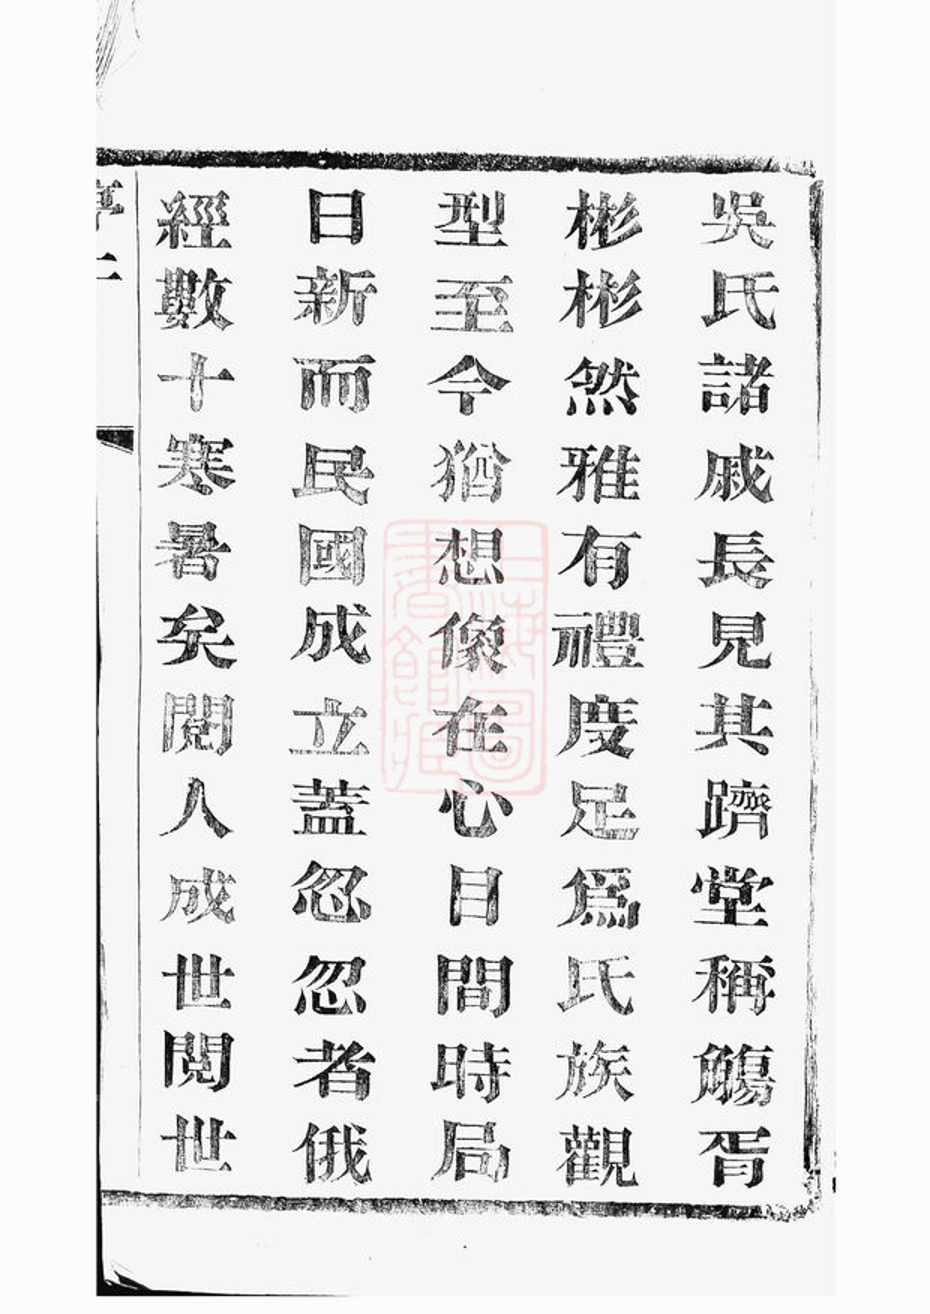 吳氏諸戚長見其躋堂稱觴胥
彬彬然雅有禮度足爲氏族觀
型至今猶想像在心目間時局
日新而民國成立蓋忽忽者俄
經數十寒暑矣閱人成世閱世
序二
上海圖書館藏